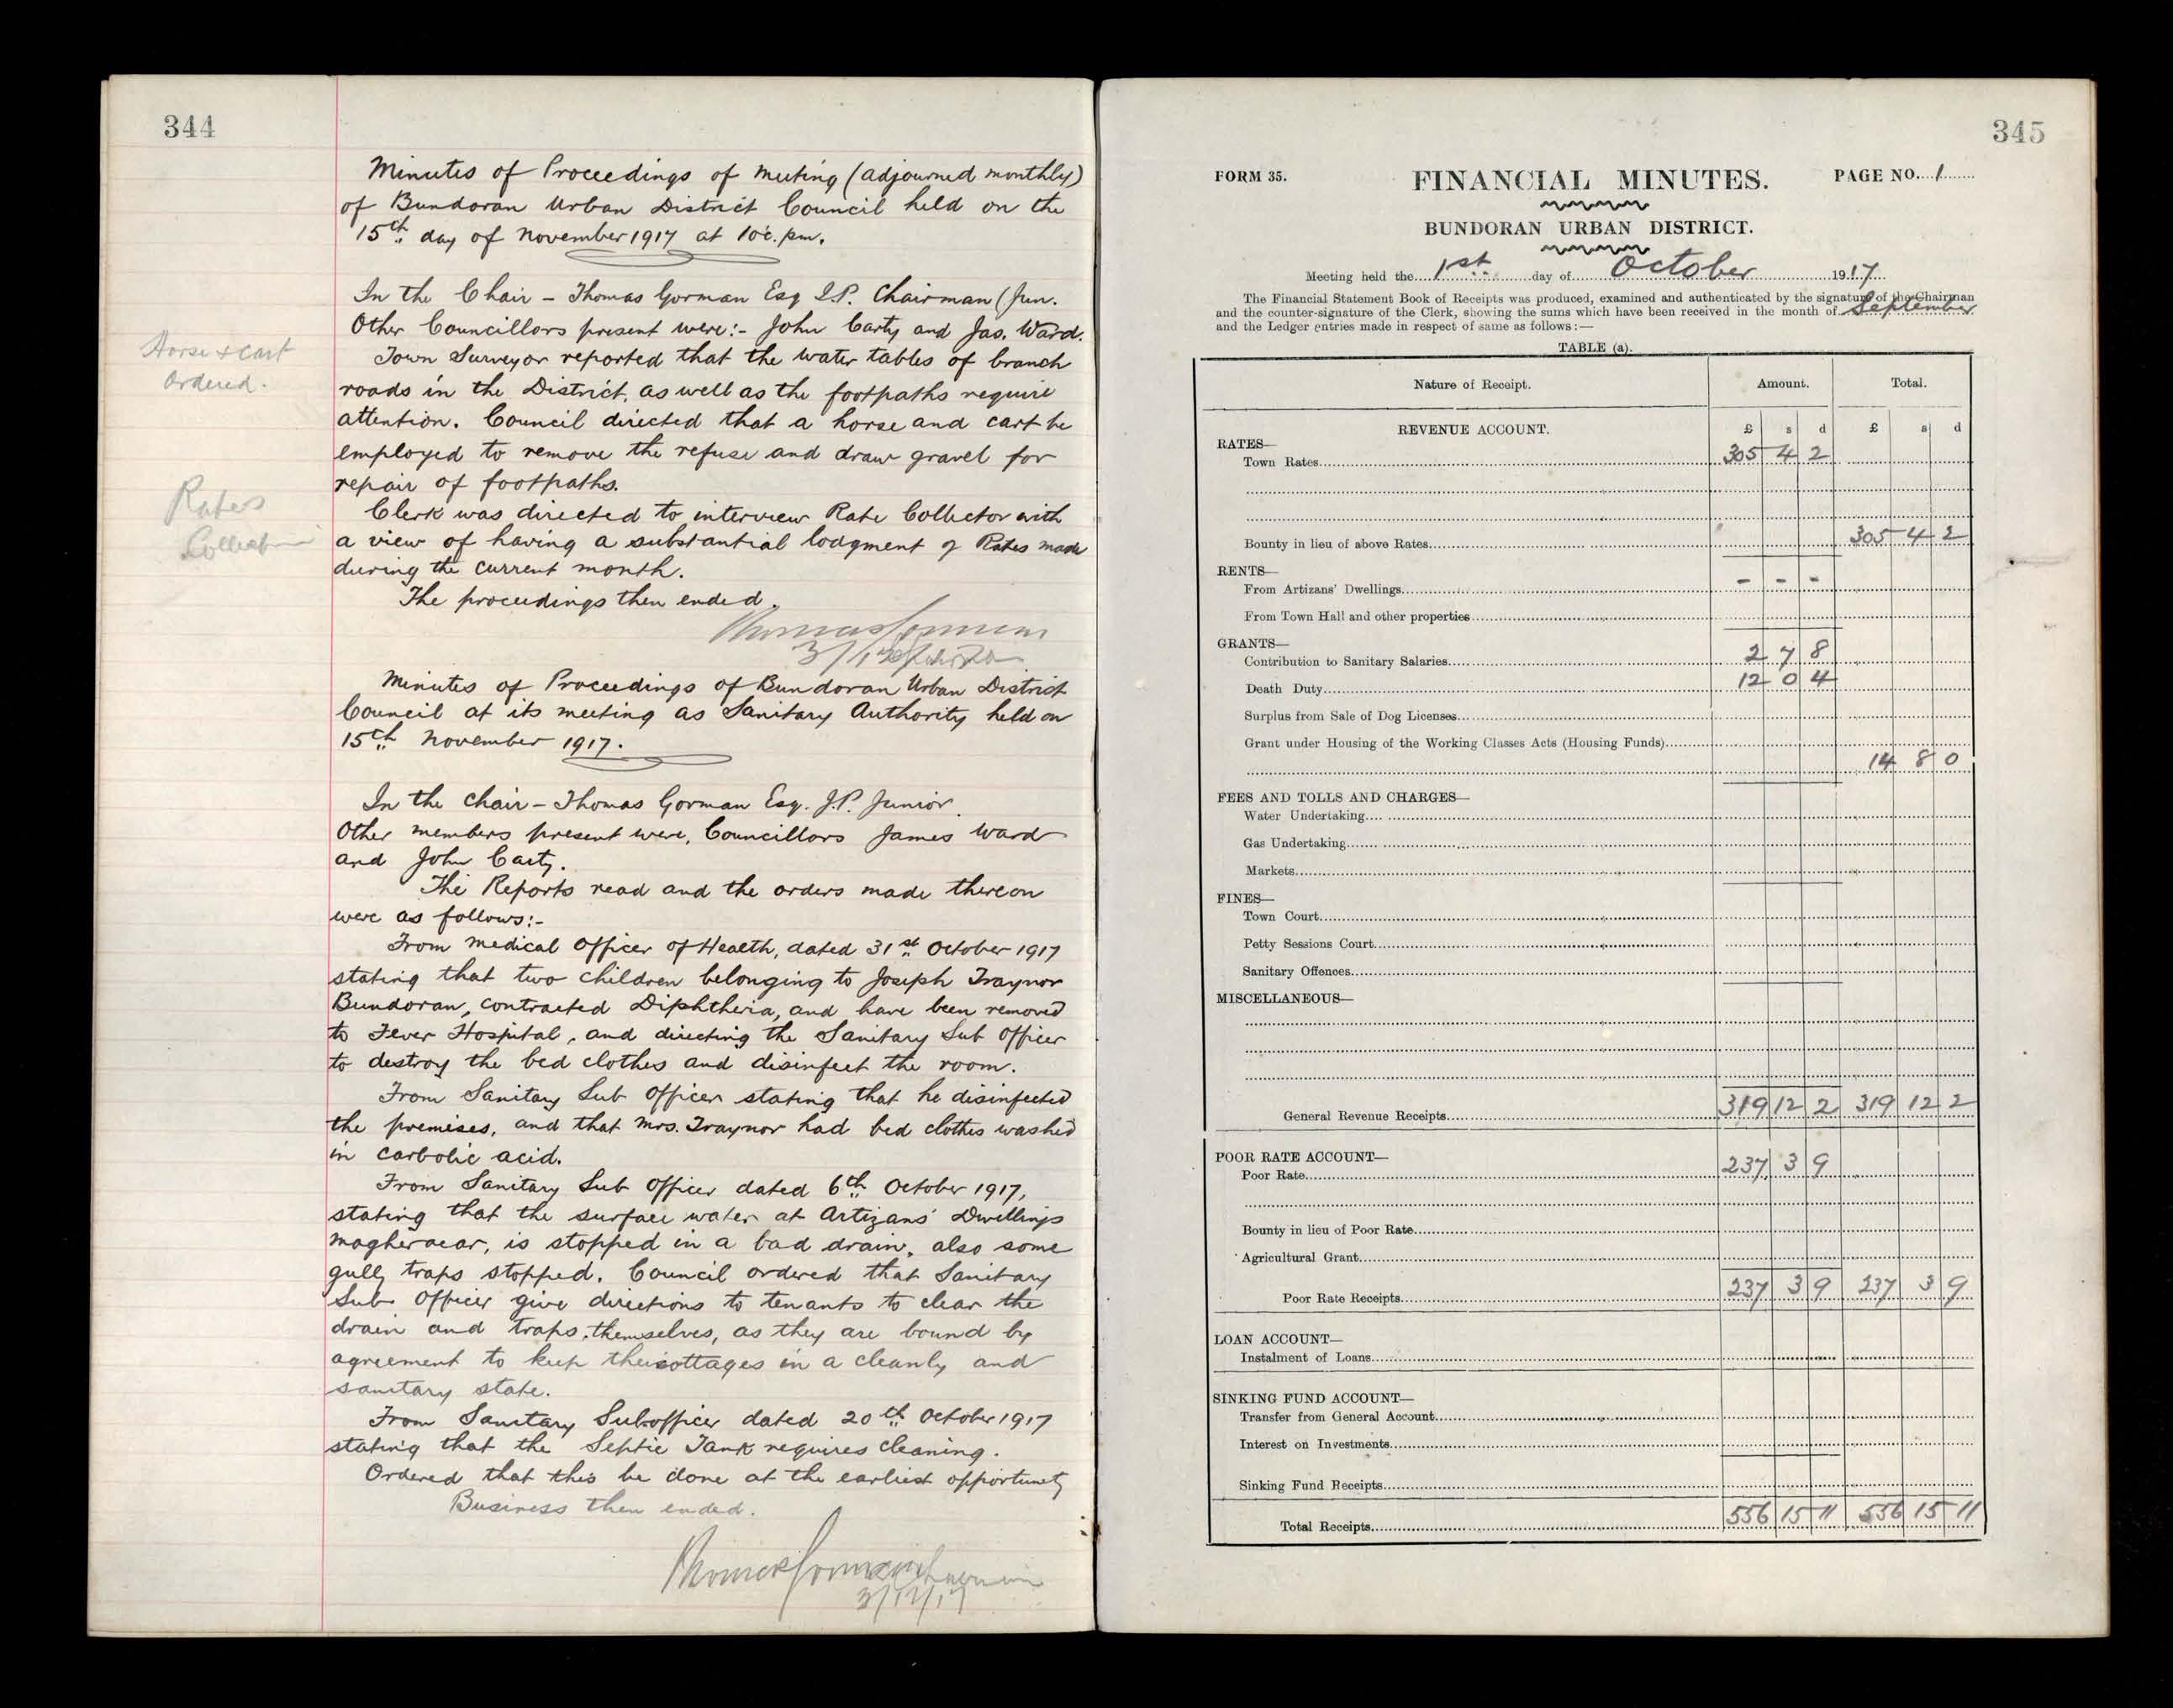 344
Minutes of Proceedings of meeting (adjourned monthly)
of Bundoran Urban District Council held on the
15th day of November 1917 at 10 c. p.m.
In the Chair – Thomas Gorman Esq J.P. Chairman (Jun.
Other Councillors present were:- John Carty and Jas. Ward.
Horse & cart
Ordered.
Town Surveyor reported that the water tables of branch
roads in the District, as well as the footpaths require
attention. Council directed that a horse and cart be
employed to remove the refuse and draw gravel for
repair of footpaths.
Rates
Collection
Clerk was directed to interview Rate Collector with
a view of having a substantial lodgment of Rates made
during the current month.
The proceedings then ended.
Thomas Gorman
Minutes of Proceedings of Bundoran Urban District
Council at its meeting as Sanitary Authority held on
15th November 1917.
In the chair – Thomas Gorman Esq. J.P. Junior.
Other members present were, Councillors James Ward
and John Carty.
The Reports read and the orders made thereon
were as follows:-
From Medical Officer of Health, dated 31st October 1917
stating that two children belonging to Joseph Traynor
Bundoran, contracted Diphtheria, and have been removed
to Fever Hospital, and directing the Sanitary Sub Officer
to destroy the bed clothes and disinfect the room.
From Sanitary Sub Officer stating that he disinfected
the premises, and that Mrs. Traynor had bed clothes washed
in carbolic acid.
From Sanitary Sub Officer dated 6th October 1917,
stating that the surface water at Artizans' Dwellings
Magheracar, is stopped in a bad drain, also some
gully traps stopped. Council ordered that Sanitary
Sub Officer give directions to tenants to clear the
drain and traps, themselves, as they are bound by
agreement to keep their cottages in a cleanly and
sanitary state.
From Sanitary Sub officer dated 20th October 1917
stating that the Septic Tank requires cleaning.
Ordered that this be done at the earliest opportunity
Business then ended.
Thomas Gorman Chairman
3/12/17
345
FORM 35.
FINANCIAL MINUTES.
PAGE NO. 1
BUNDORAN URBAN DISTRICT.
Meeting held the 1st day of October 1917
The Financial Statement Book of Receipts was produced, examined and authenticated by the signature of the Chairman
and the counter-signature of the Clerk, showing the sums which have been received in the month of September
and the Ledger entries made in respect of same as follows:—
TABLE (a).
Nature of Receipt. Amount. Total.
REVENUE ACCOUNT. £ s d £ s d
RATES—
Town Rates 305 4 2
Bounty in lieu of above Rates 305 4 2
RENTS—
From Artizans' Dwellings - - -
From Town Hall and other properties
GRANTS—
Contribution to Sanitary Salaries 2 7 8
Death Duty 12 0 4
Surplus from Sale of Dog Licenses
Grant under Housing of the Working Classes Acts (Housing Funds)
14 8 0
FEES AND TOLLS AND CHARGES—
Water Undertaking
Gas Undertaking
Markets
FINES—
Town Court
Petty Sessions Court
Sanitary Offences
MISCELLANEOUS—
General Revenue Receipts 319 12 2 319 12 2
POOR RATE ACCOUNT—
Poor Rate 237 3 9
Bounty in lieu of Poor Rate
Agricultural Grant
Poor Rate Receipts 237 3 9 237 3 9
LOAN ACCOUNT—
Instalment of Loans
SINKING FUND ACCOUNT—
Transfer from General Account
Interest on Investments
Sinking Fund Receipts
Total Receipts 556 15 11 556 15 11